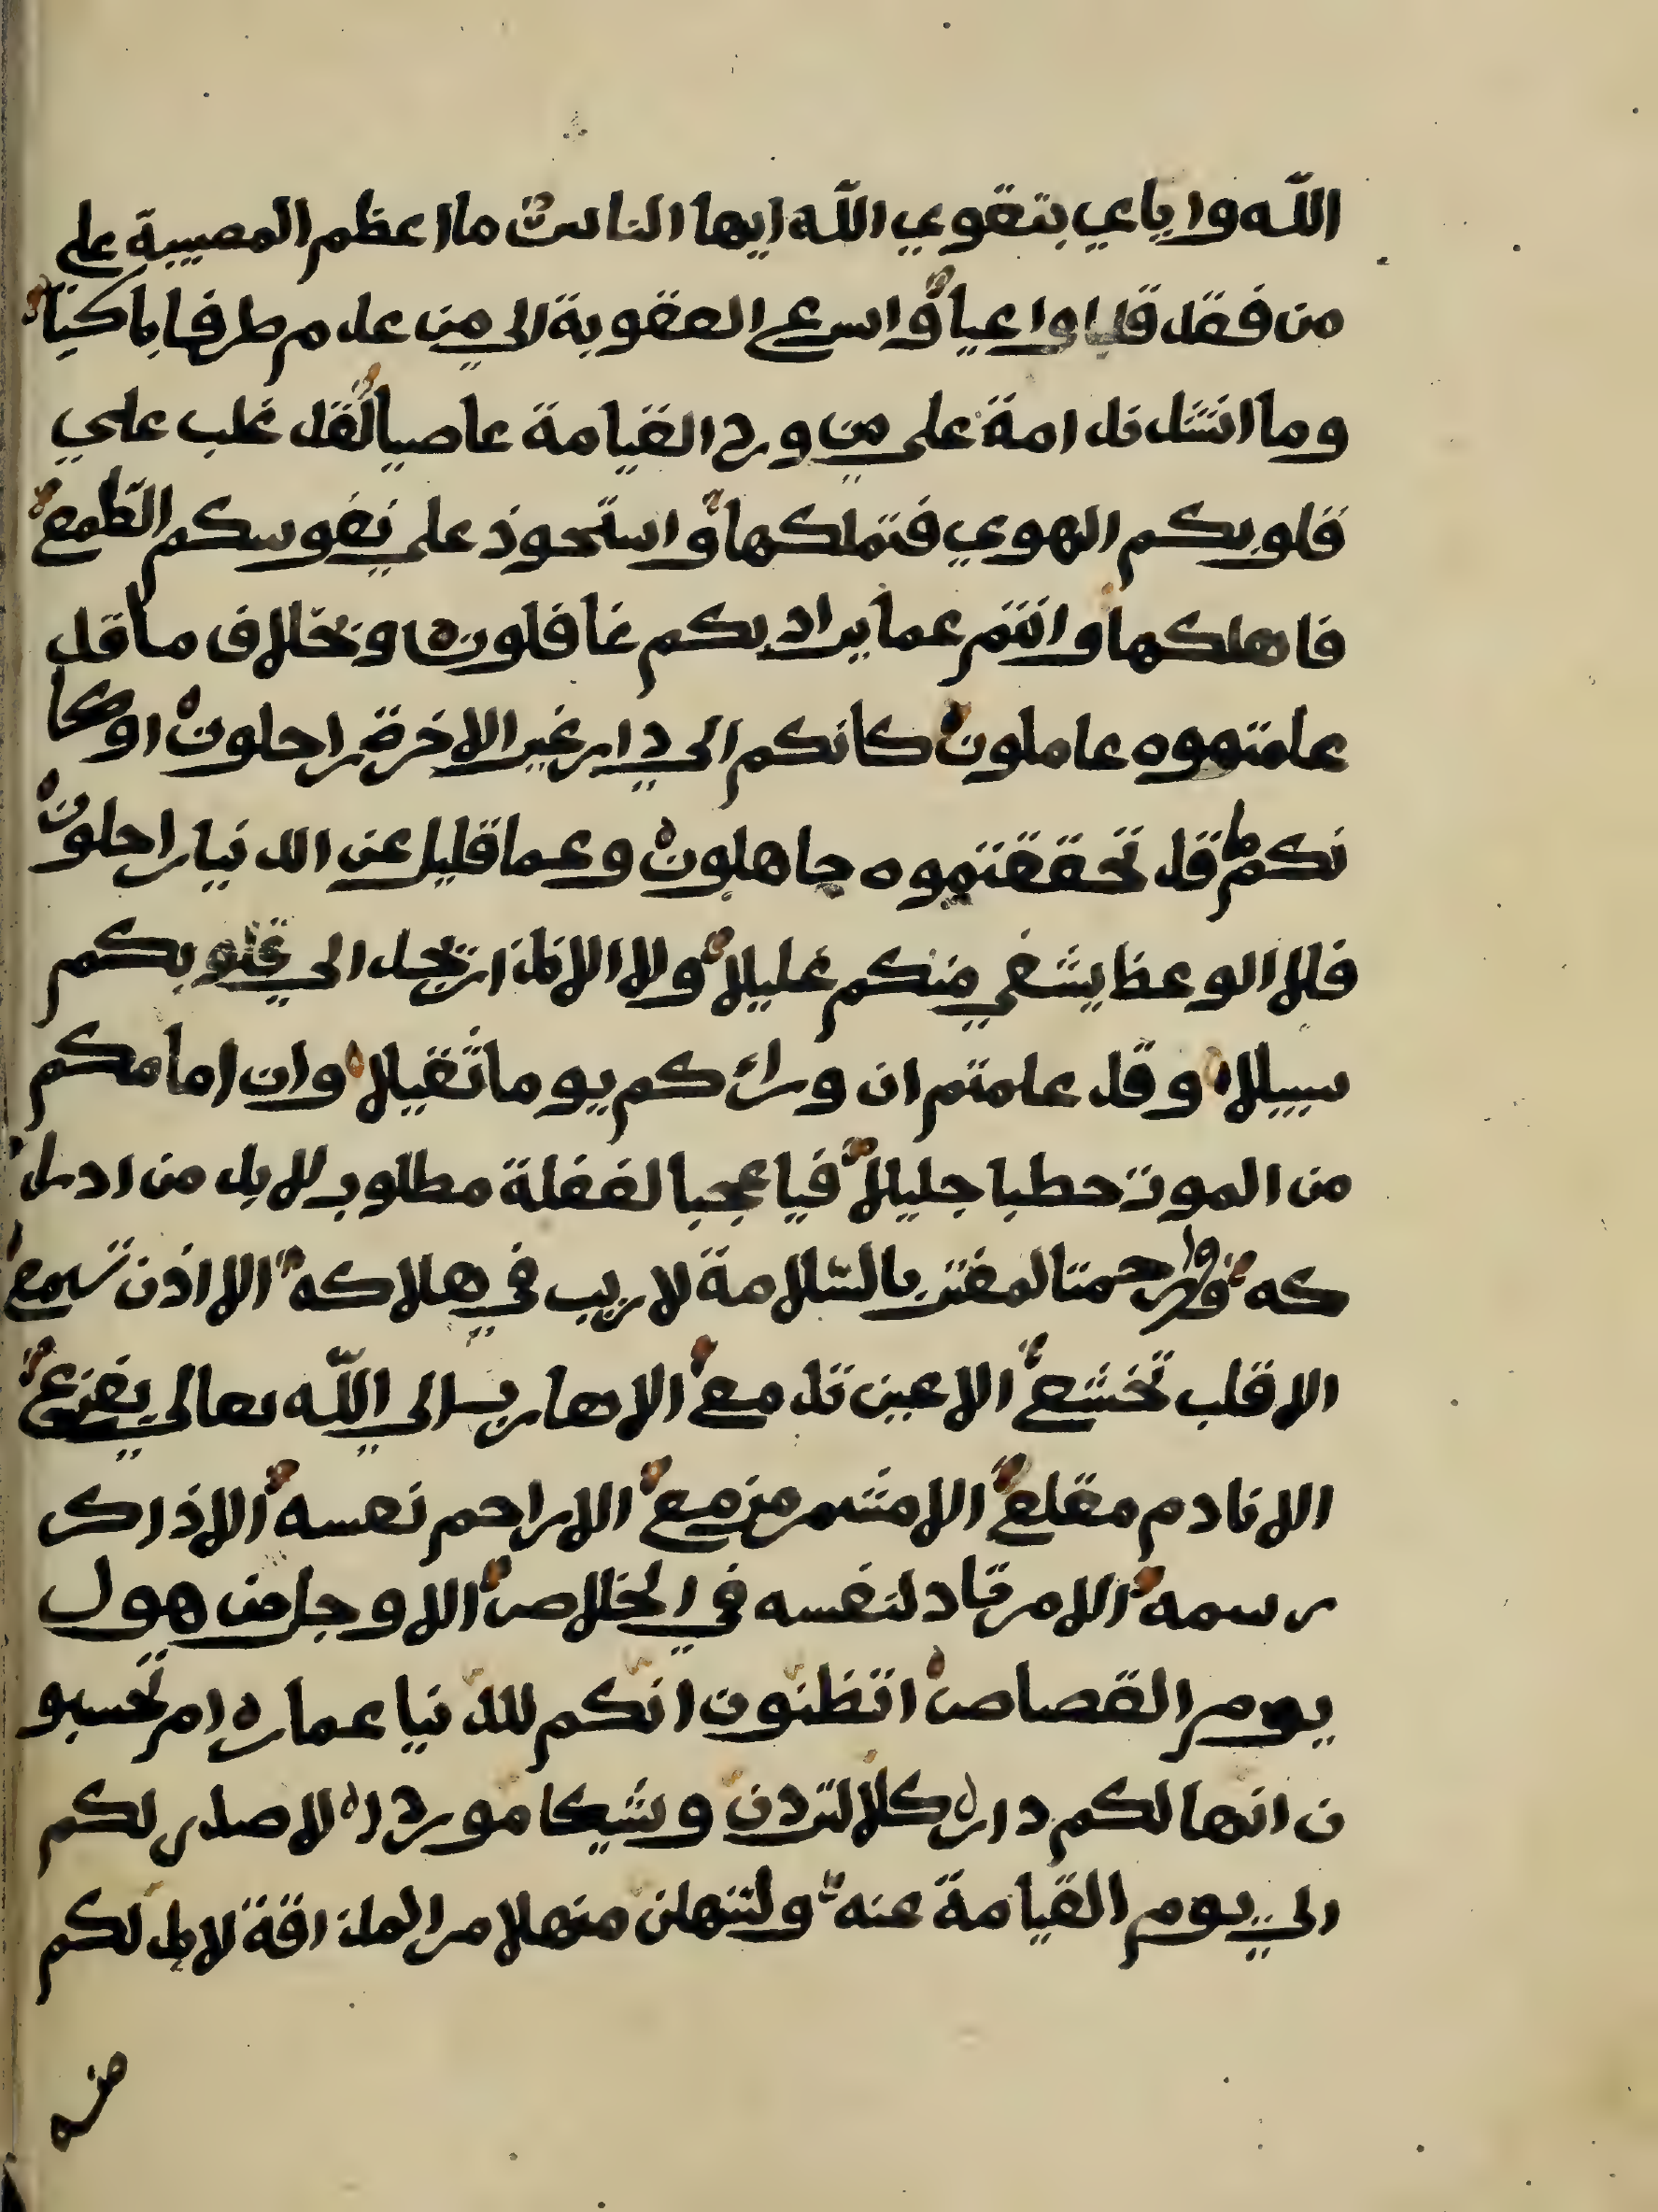 الله واياي بتقوي الله ايها الناس ما اعظم المصيبة علي
من فقد قلبا واعيا واسرع العقوبة الي من عدم طرفا باكيا
وما اشد ندامة علي من ورد القيامة عاصيا لقد غلب علي
قلوبكم الهوي فتملكها واستحوذ علي نفوسكم الطمع
فاهلكها وانتم عما يراد بكم غافلون وبخلاف ما قد
علمتموه عاملون كانكم الي دار غير الاخرة راحلون او كا
نكم ما قد تحققتموه جاهلون وعما قليل عن الدنيا راحلون
فلا الوعظ يشفي منكم غليلا ولا الانذار يجد الي قلوبكم
سبيلا وقد علمتم ان ورائكم يوما ثقيلا وان امامكم
من الموت خطبا جليلا فيا عجبا لغفلة مطلوب لا بد من ادرا
كه وا رحمتا لمغتر بالسلامة لا ريب في هلاكه الا اذن تسمع
الا قلب تخشع الا عين تدمع الا هارب الي الله تعالي يفزع
الا نادم مقلع الا مشمر مزمع الا راحم نفسه الا ذاكر
رسمه الا مرتاد لنفسه في الخلاص الا وجل من هول
يوم القصاص اتظنون انكم للدنيا عمار ام تحسبو
ن انها لكم دار كلا لتردن وشيكا موردا لا صدر لكم
الي يوم القيامة عنه ولتنهلن منهلا مر المذاقة لا بد لكم
منه